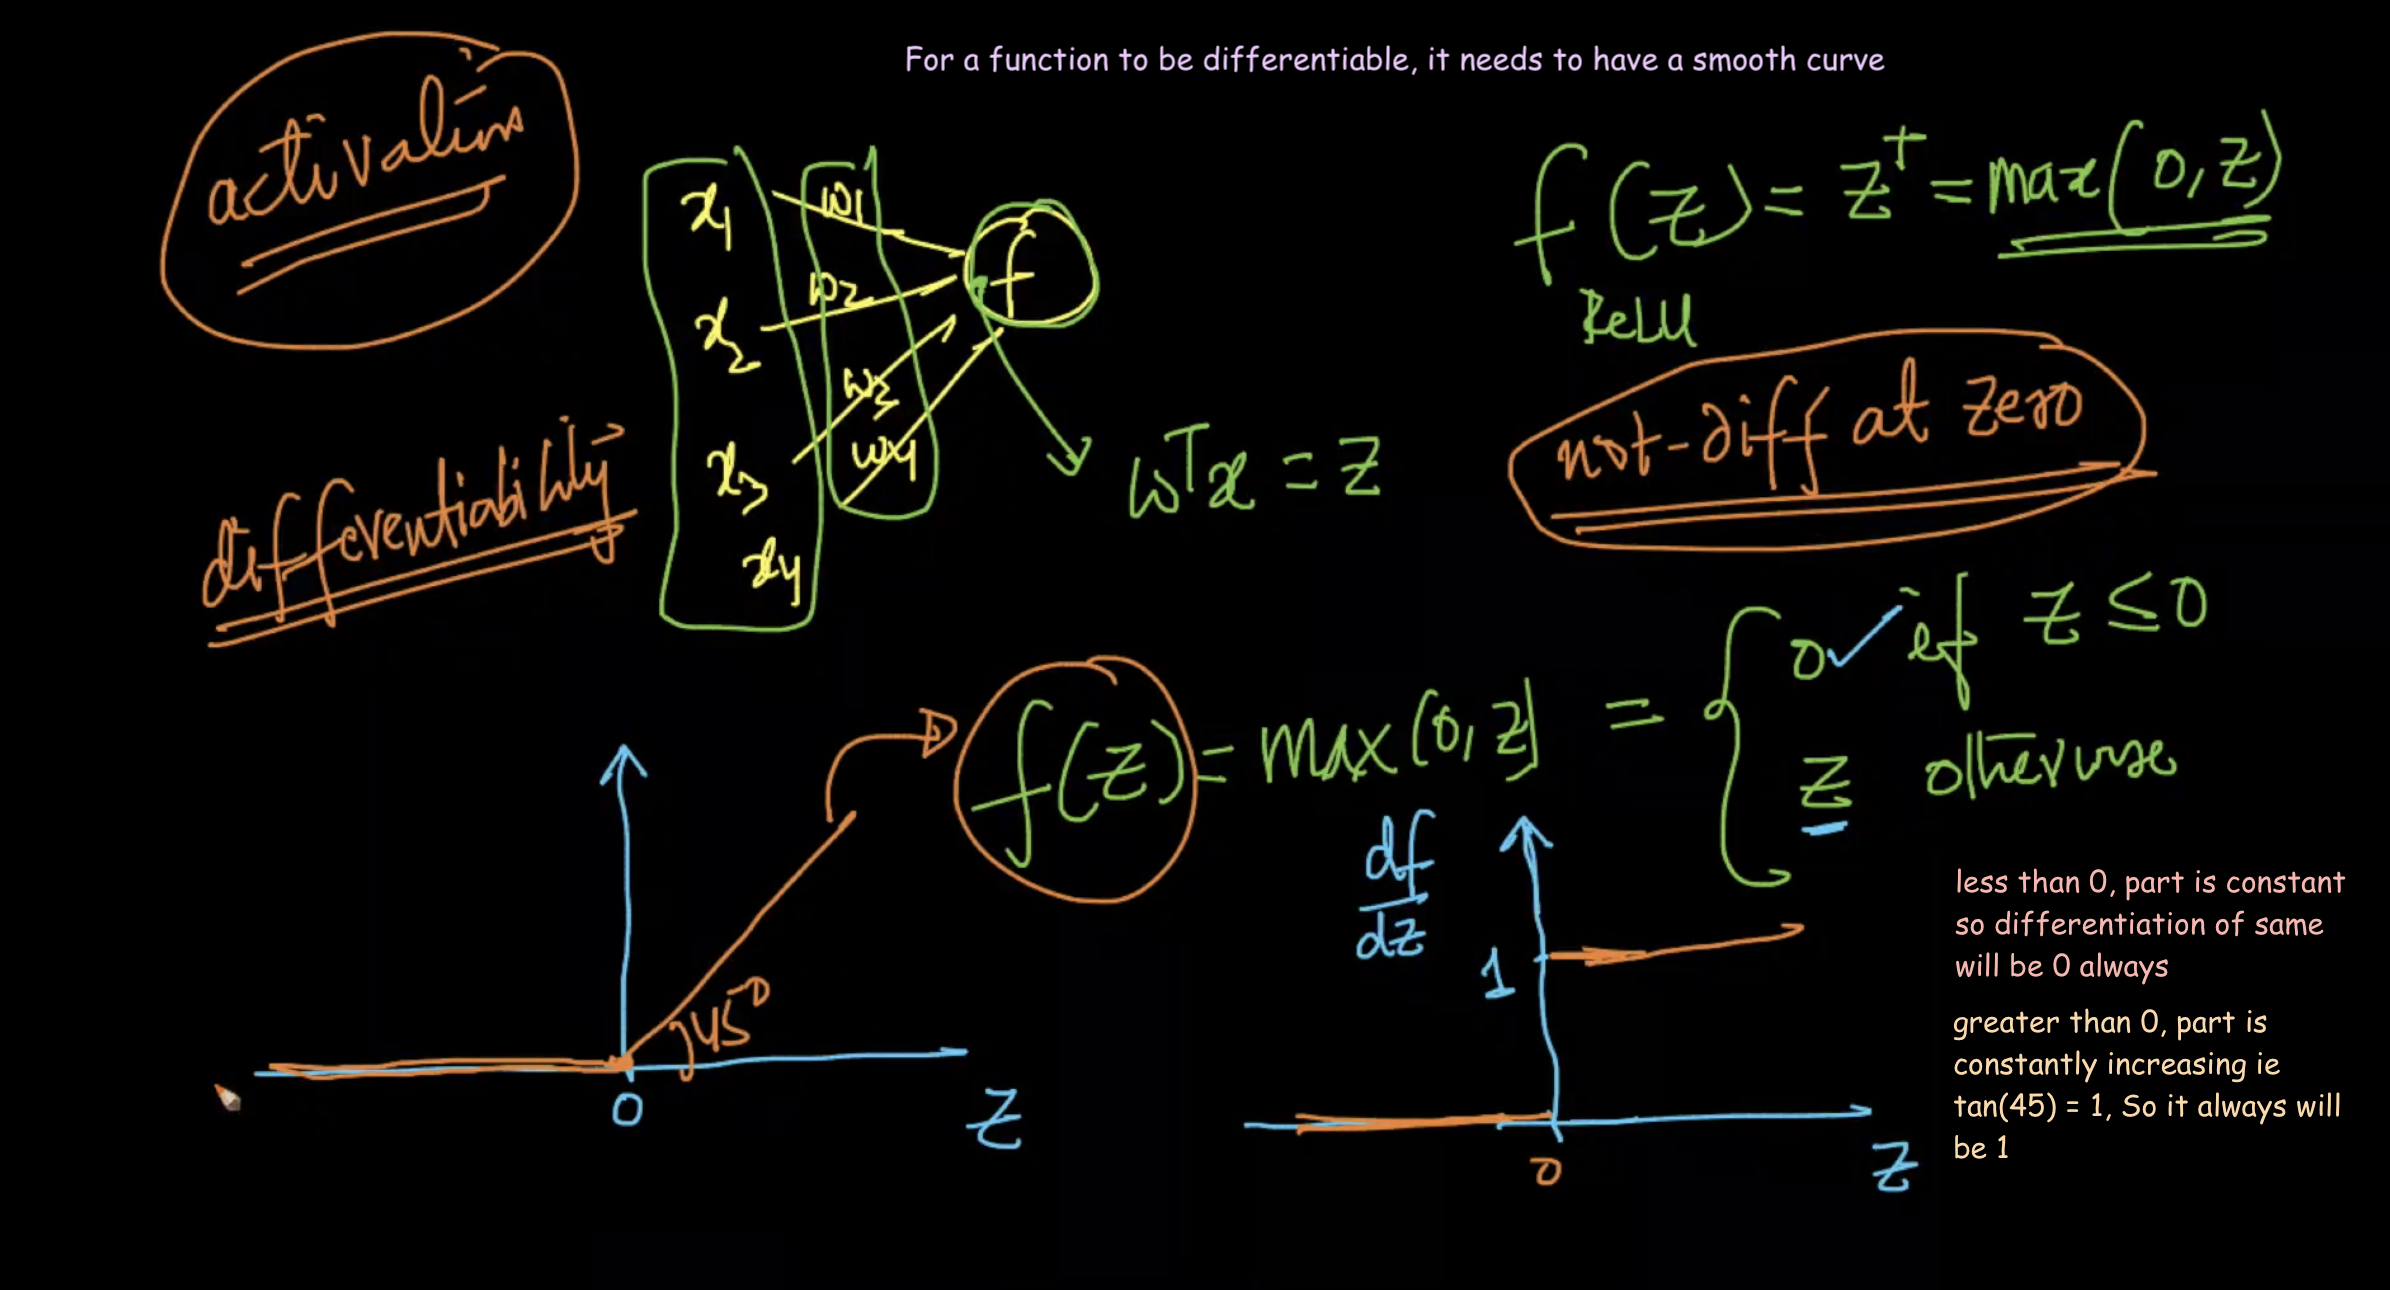 For a function to be differentiable, it needs to have a smooth curve
activations
x1
x2
x3
x4
w1
w2
w3
w4
f
wᵀx = z
f(z) = z⁺ = max(0, z)
ReLU
not-diff at zero
differentiability
f(z) = max(0, z) = { 0 if z ≤ 0
z otherwise
45°
0
z
df
dz
1
0
z
less than 0, part is constant
so differentiation of same
will be 0 always
greater than 0, part is
constantly increasing ie
tan(45) = 1, So it always will
be 1